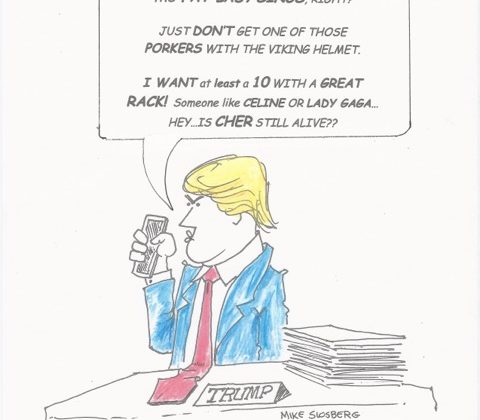 THE FAT LADY SINGS, RIGHT?
JUST DON'T GET ONE OF THOSE
PORKERS WITH THE VIKING HELMET.
I WANT at least a 10 WITH A GREAT
RACK! Someone like CELINE OR LADY GAGA...
HEY...IS CHER STILL ALIVE??
TRUMP
MIKE SLOSBERG